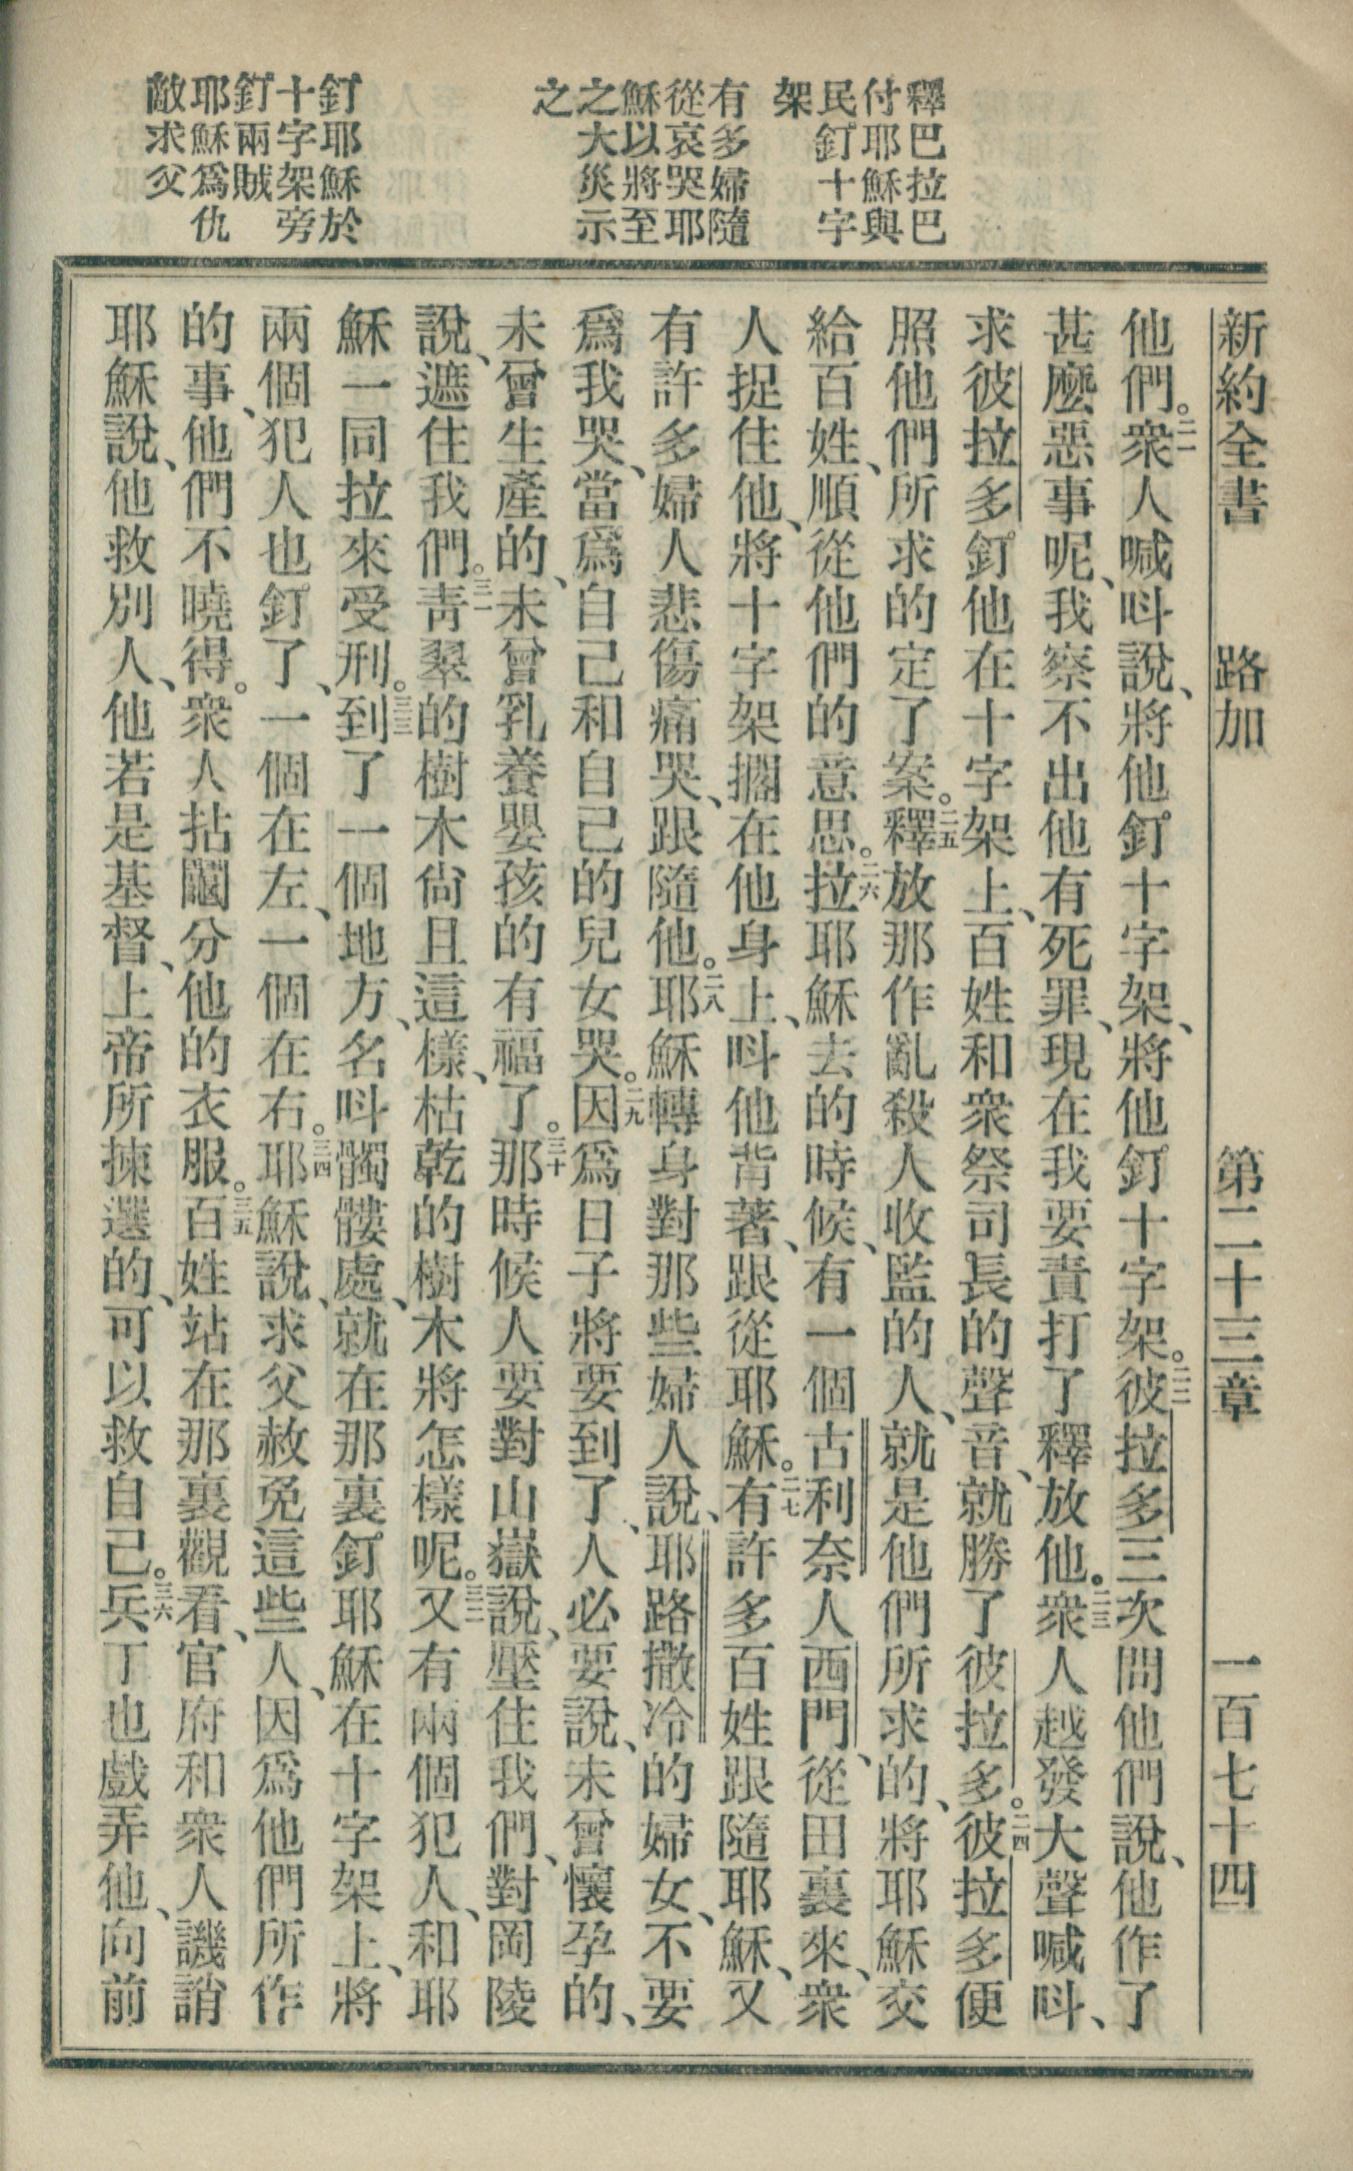 新約全書　路加　第二十三章　一百七十四
釋巴拉巴
付耶穌與
民釘十字
架
有多婦隨
從哀哭耶
穌以將至
之大災示
之
釘耶穌於
十字架旁
釘兩賊
耶穌爲仇
敵求父
他們。二一衆人喊呌說、將他釘十字架、將他釘十字架。二二彼拉多三次問他們說、他作了
甚麼惡事呢、我察不出他有死罪、現在我要責打了釋放他。二三衆人越發大聲喊呌、
求彼拉多釘他在十字架上、百姓和衆祭司長的聲音、就勝了彼拉多。二四彼拉多便
照他們所求的定了案。二五釋放那作亂殺人收監的人、就是他們所求的、將耶穌交
給百姓、順從他們的意思。二六拉耶穌去的時候、有一個古利奈人西門、從田裏來、衆
人捉住他、將十字架擱在他身上、呌他背著、跟從耶穌。二七有許多百姓跟隨耶穌、又
有許多婦人悲傷痛哭、跟隨他。二八耶穌轉身對那些婦人說、耶路撒冷的婦女、不要
爲我哭、當爲自己和自己的兒女哭。二九因爲日子將要到了、人必要說、未曾懷孕的、
未曾生產的、未曾乳養嬰孩的有福了。三十那時候人要對山嶽說、壓住我們、對岡陵
說、遮住我們。三一靑翠的樹木尙且這樣、枯乾的樹木將怎樣呢。三二又有兩個犯人、和耶
穌一同拉來受刑。三三到了一個地方、名呌髑髏處、就在那裏釘耶穌在十字架上、將
兩個犯人也釘了、一個在左、一個在右。三四耶穌說、求父赦免這些人、因爲他們所作
的事、他們不曉得。衆人拈鬮分他的衣服。三五百姓站在那裏觀看、官府和衆人譏誚
耶穌說、他救別人、他若是基督、上帝所揀選的、可以救自己。三六兵丁也戲弄他、向前